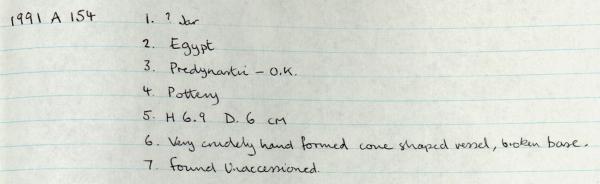 1991 A 154 1. ? Jar
2. Egypt
3. Predynastic - O.K.
4. Pottery
5. H 6.9 D. 6 cm
6. Very crudely hand formed cone shaped vessel, broken base.
7. Found Unaccessioned.